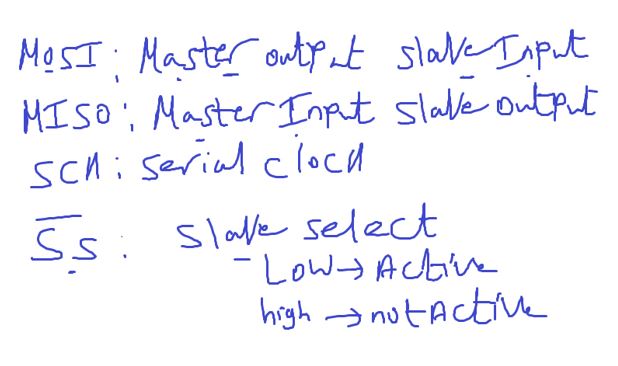 MOSI : Master output slave Input
MISO : Master Input slave output
SCK : serial clock
S̅S̅ : slave select
Low → Active
high → not Active